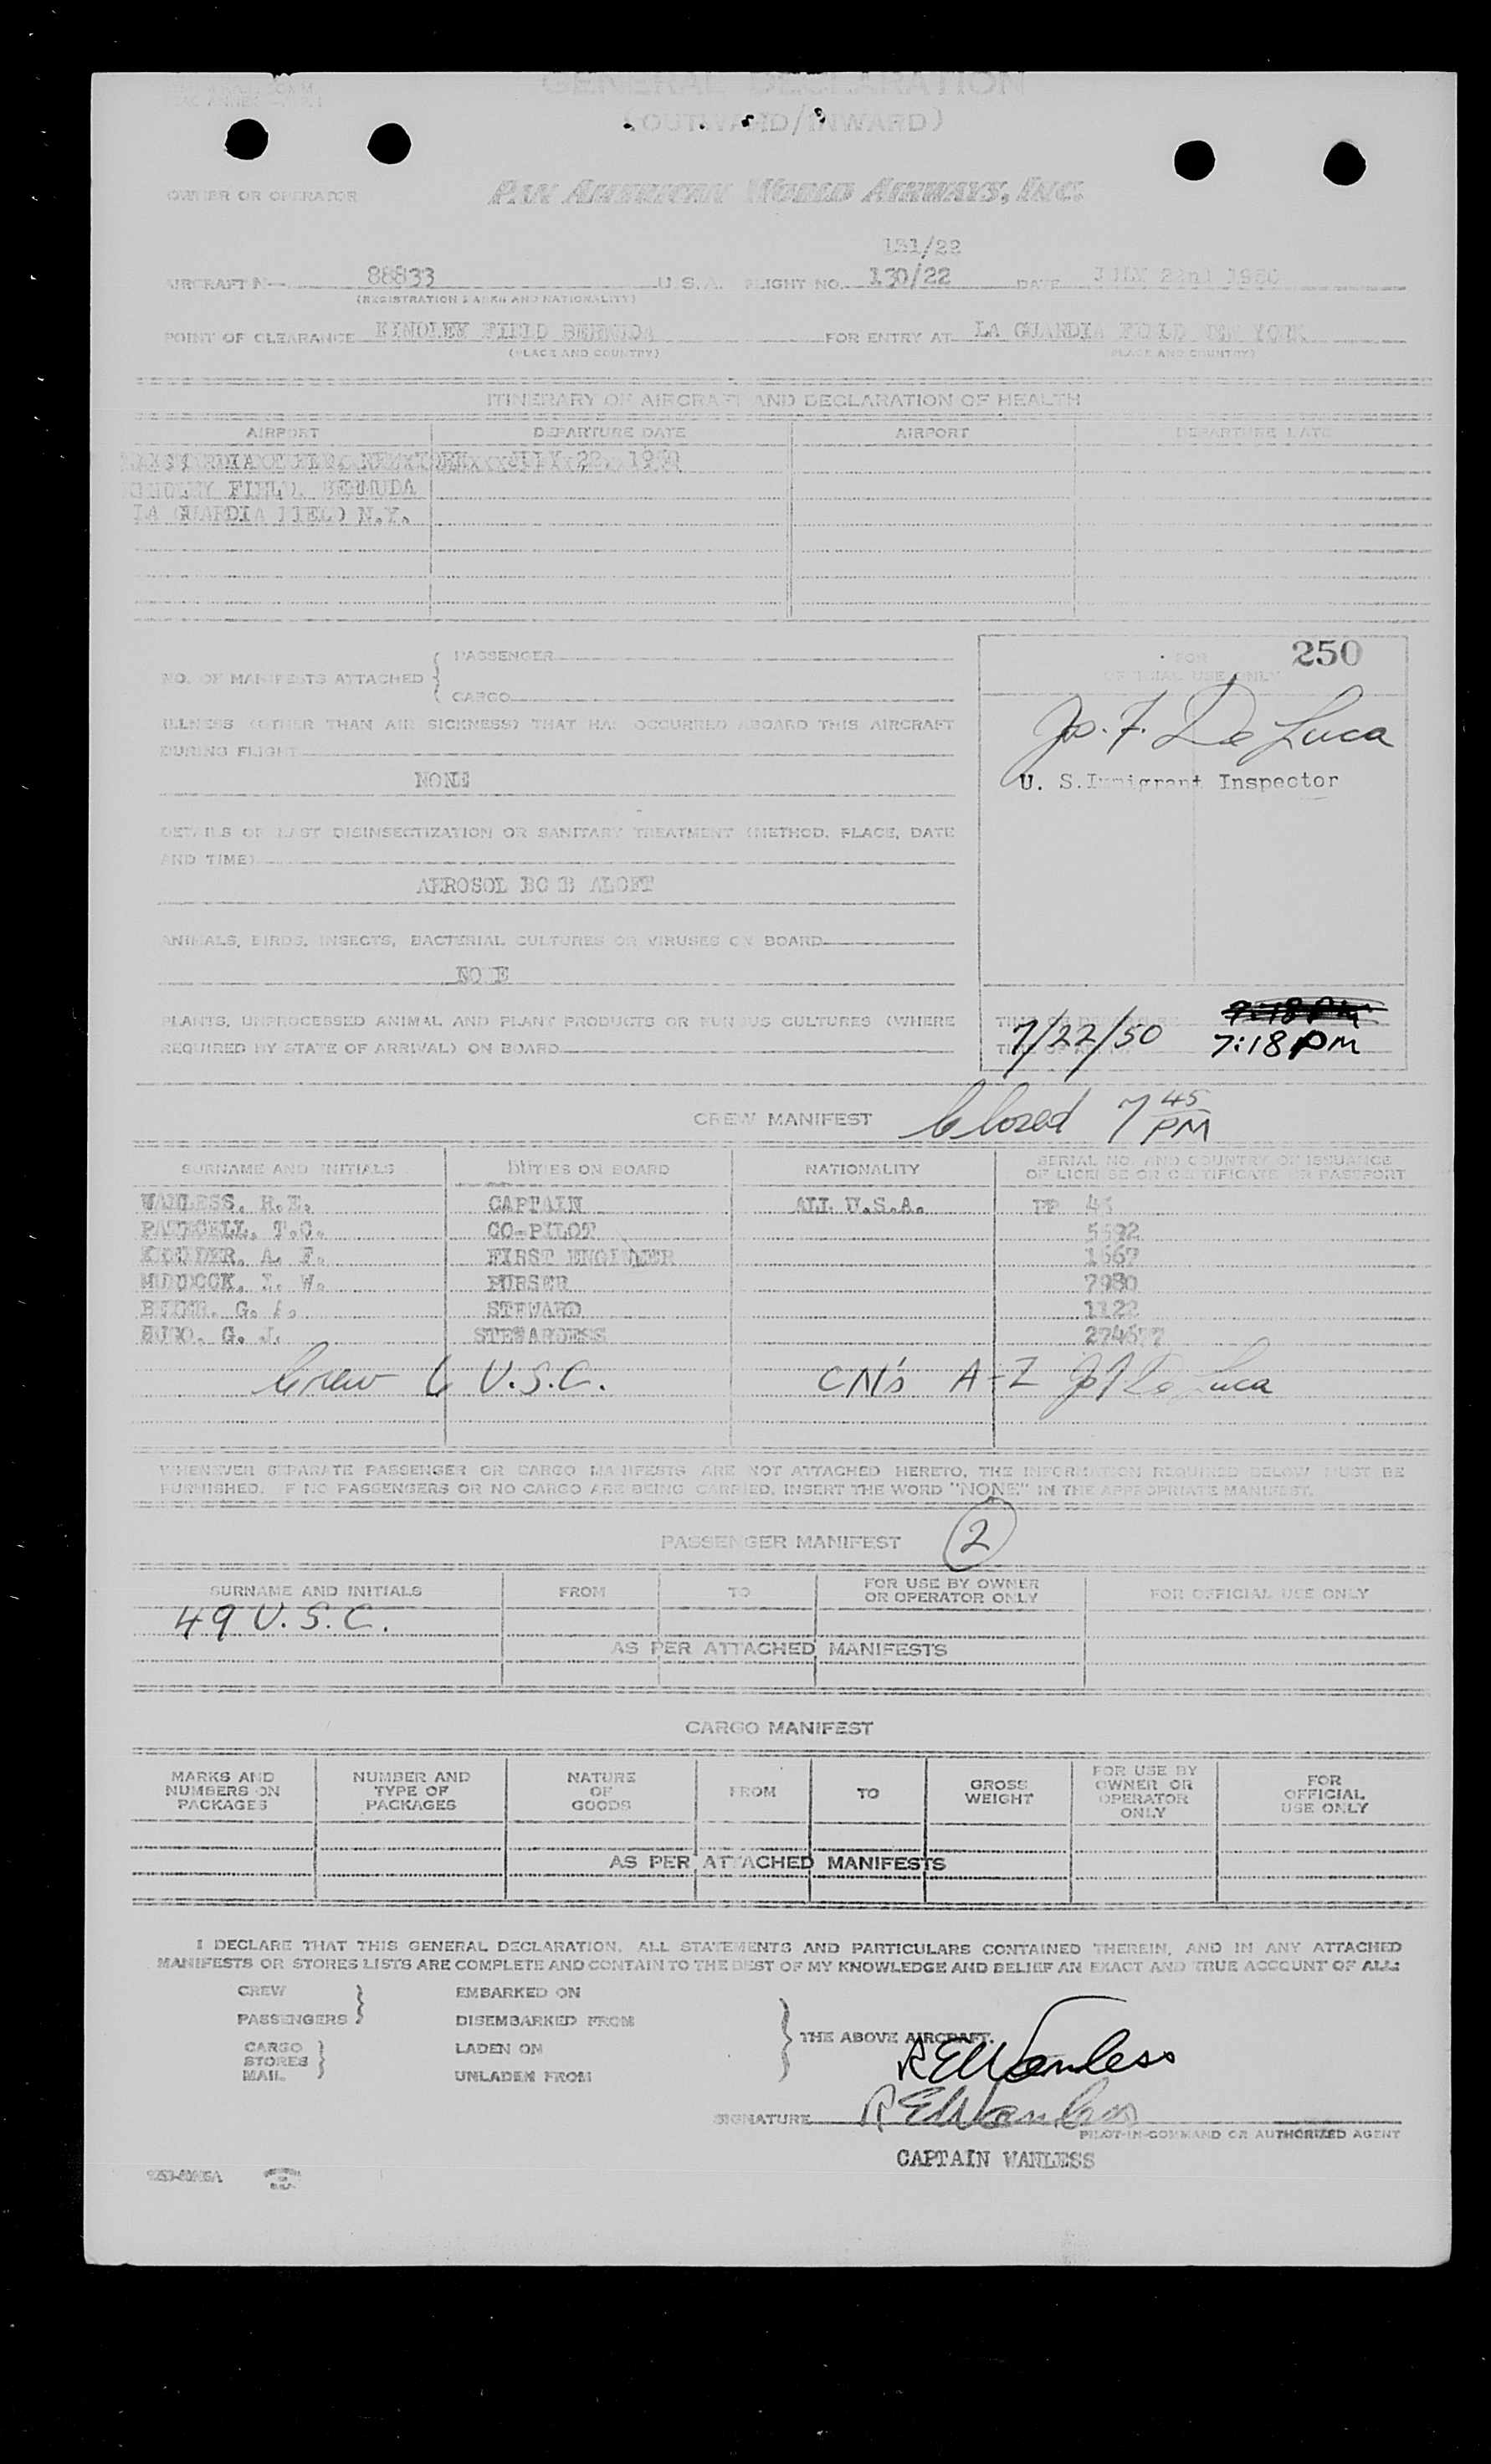 GENERAL DECLARATION
(OUTWARD/INWARD)
OWNER OR OPERATOR PAN AMERICAN WORLD AIRWAYS, INC.
131/22
AIRCRAFT N— 88833 U.S.A. FLIGHT NO. 130/22 DATE JULY 22nd 1950
(REGISTRATION MARKS AND NATIONALITY)
POINT OF CLEARANCE KINDLEY FIELD BERMUDA FOR ENTRY AT LA GUARDIA FIELD NEW YORK
(PLACE AND COUNTRY) (PLACE AND COUNTRY)
ITINERARY OF AIRCRAFT AND DECLARATION OF HEALTH
AIRPORT DEPARTURE DATE AIRPORT DEPARTURE DATE
JULY 22, 1950
KINDLEY FIELD, BERMUDA
LA GUARDIA FIELD N.Y.
NO. OF MANIFESTS ATTACHED { PASSENGER
CARGO
FOR 250
OFFICIAL USE ONLY
ILLNESS (OTHER THAN AIR SICKNESS) THAT HAS OCCURRED ABOARD THIS AIRCRAFT
DURING FLIGHT
NONE
Jo. F. De Luca
U. S. Immigrant Inspector
DETAILS OF LAST DISINSECTIZATION OR SANITARY TREATMENT (METHOD, PLACE, DATE
AND TIME)
AEROSOL BOMB ALOFT
ANIMALS, BIRDS, INSECTS, BACTERIAL CULTURES OR VIRUSES ON BOARD
NONE
PLANTS, UNPROCESSED ANIMAL AND PLANT PRODUCTS OR FUNGUS CULTURES (WHERE
REQUIRED BY STATE OF ARRIVAL) ON BOARD
7/22/50 7:18 PM
CREW MANIFEST Closed 7 45 PM
SURNAME AND INITIALS DUTIES ON BOARD NATIONALITY SERIAL NO. AND COUNTRY OF ISSUANCE
OF LICENSE OR CERTIFICATE OR PASSPORT
WANLESS, R.E. CAPTAIN ALL U.S.A. PP
T.C. CO-PILOT 5692
A. F. FIRST ENGINEER 1667
W. PURSER 7980
G. A. STEWARD 1122
G. J. STEWARDESS
Crew 6 U.S.C. CN's A-Z Jo F De Luca
WHENEVER SEPARATE PASSENGER OR CARGO MANIFESTS ARE NOT ATTACHED HERETO, THE INFORMATION REQUIRED BELOW MUST BE
FURNISHED. IF NO PASSENGERS OR NO CARGO ARE BEING CARRIED, INSERT THE WORD "NONE" IN THE APPROPRIATE MANIFEST.
PASSENGER MANIFEST 2
SURNAME AND INITIALS FROM TO FOR USE BY OWNER OR OPERATOR ONLY FOR OFFICIAL USE ONLY
49 U.S.C.
AS PER ATTACHED MANIFESTS
CARGO MANIFEST
MARKS AND NUMBERS ON PACKAGES NUMBER AND TYPE OF PACKAGES NATURE OF GOODS FROM TO GROSS WEIGHT FOR USE BY OWNER OR OPERATOR ONLY FOR OFFICIAL USE ONLY
AS PER ATTACHED MANIFESTS
I DECLARE THAT THIS GENERAL DECLARATION, ALL STATEMENTS AND PARTICULARS CONTAINED THEREIN, AND IN ANY ATTACHED
MANIFESTS OR STORES LISTS ARE COMPLETE AND CONTAIN TO THE BEST OF MY KNOWLEDGE AND BELIEF AN EXACT AND TRUE ACCOUNT OF ALL:
CREW EMBARKED ON
PASSENGERS DISEMBARKED FROM
THE ABOVE AIRCRAFT.
CARGO LADEN ON
STORES
MAIL UNLADEN FROM
REWanless
SIGNATURE REWanless
PILOT-IN-COMMAND OR AUTHORIZED AGENT
CAPTAIN WANLESS